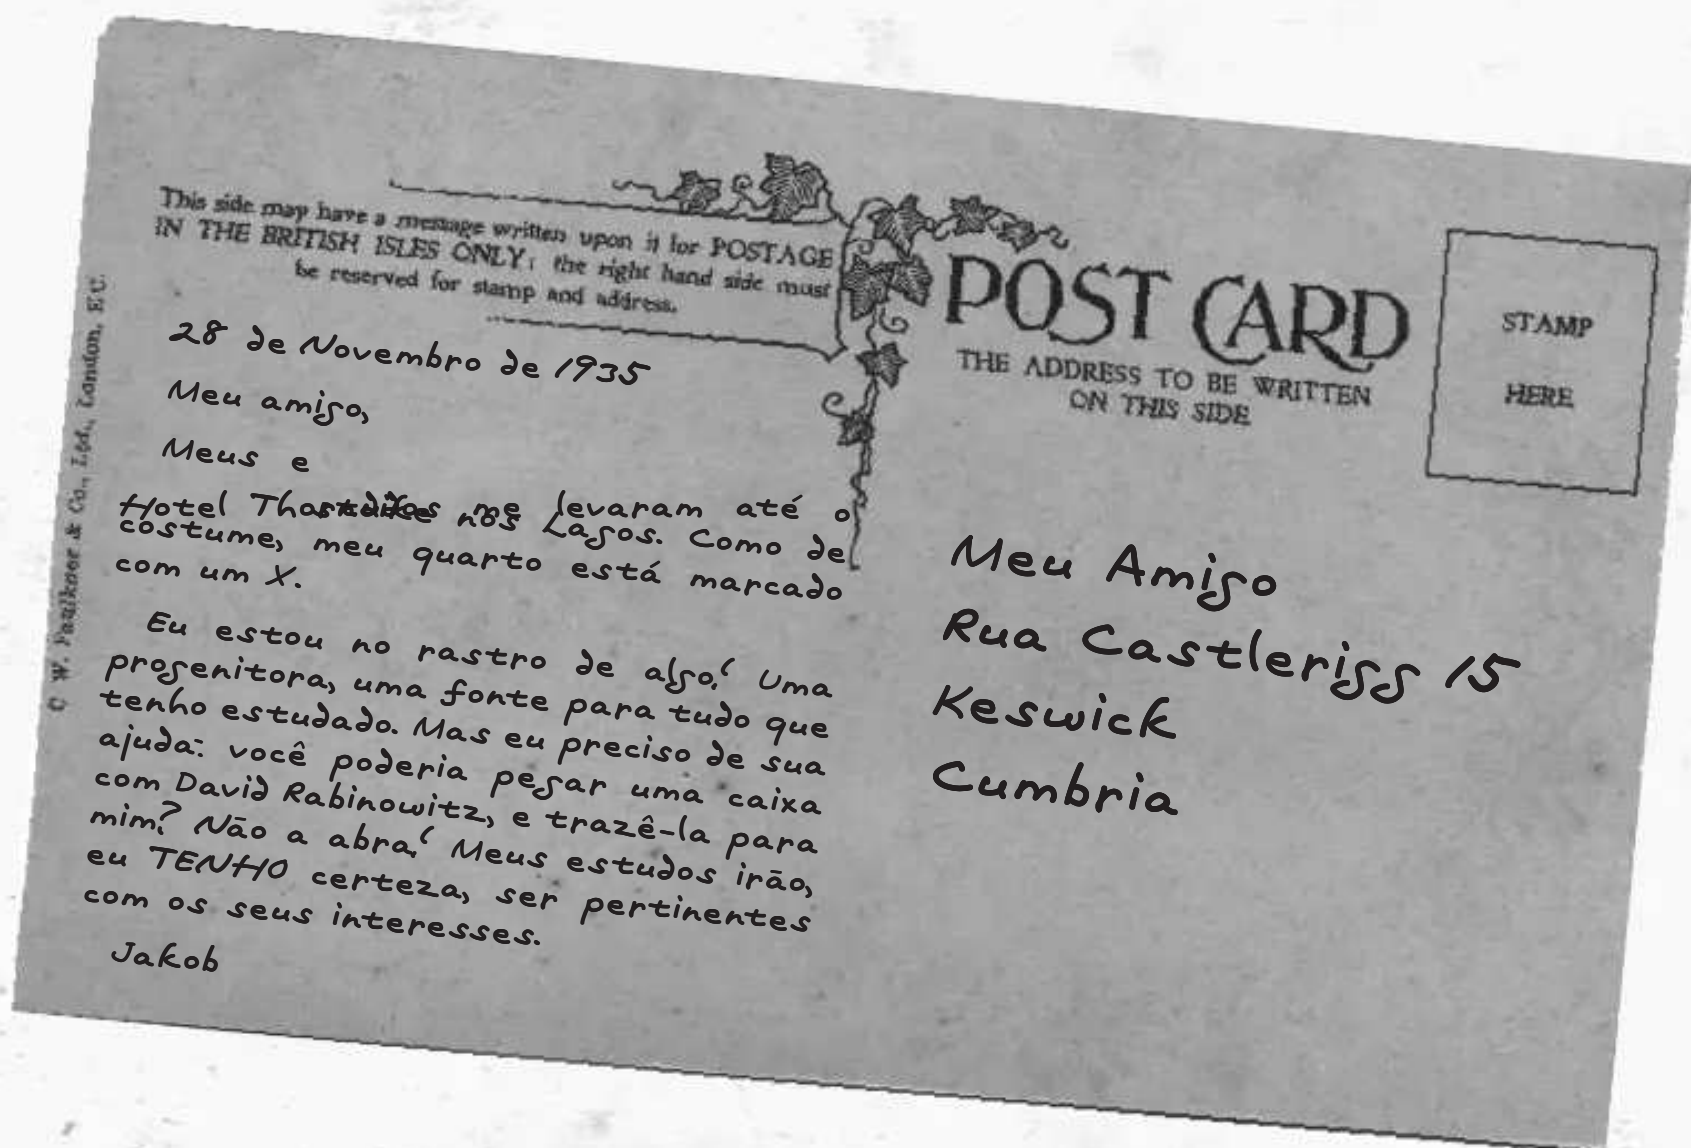 This side may have a message written upon it for POSTAGE
IN THE BRITISH ISLES ONLY; the right hand side must
be reserved for stamp and address.
POST CARD
THE ADDRESS TO BE WRITTEN
ON THIS SIDE
STAMP
HERE
C. W. Faulkner & Co., Ltd., London, E.C.
28 de Novembro de 1935
Meu amigo,
Meus e
me levaram até o
Hotel nos Lagos. Como de
costume, meu quarto está marcado
com um X.
Eu estou no rastro de algo! Uma
progenitora, uma fonte para tudo que
tenho estudado. Mas eu preciso de sua
ajuda: você poderia pegar uma caixa
com David Rabinowitz, e trazê-la para
mim? Não a abra! Meus estudos irão,
eu TENHO certeza, ser pertinentes
com os seus interesses.
Jakob
Meu Amigo
Rua Castlerigg 15
Keswick
Cumbria